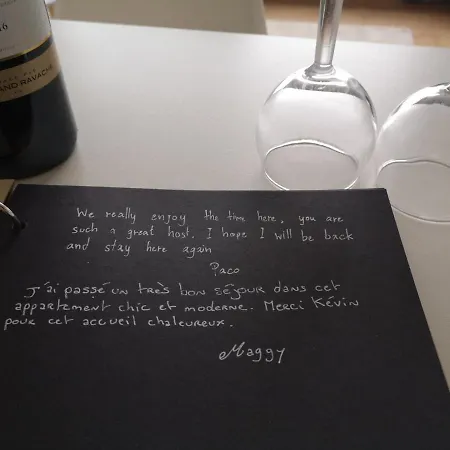 AND RAVACHE
We really enjoy the time here, you are
such a great host. I hope I will be back
and stay here again
Paco
J'ai passé un très bon séjour dans cet
appartement chic et moderne. Merci Kévin
pour cet accueil chaleureux.
Maggy